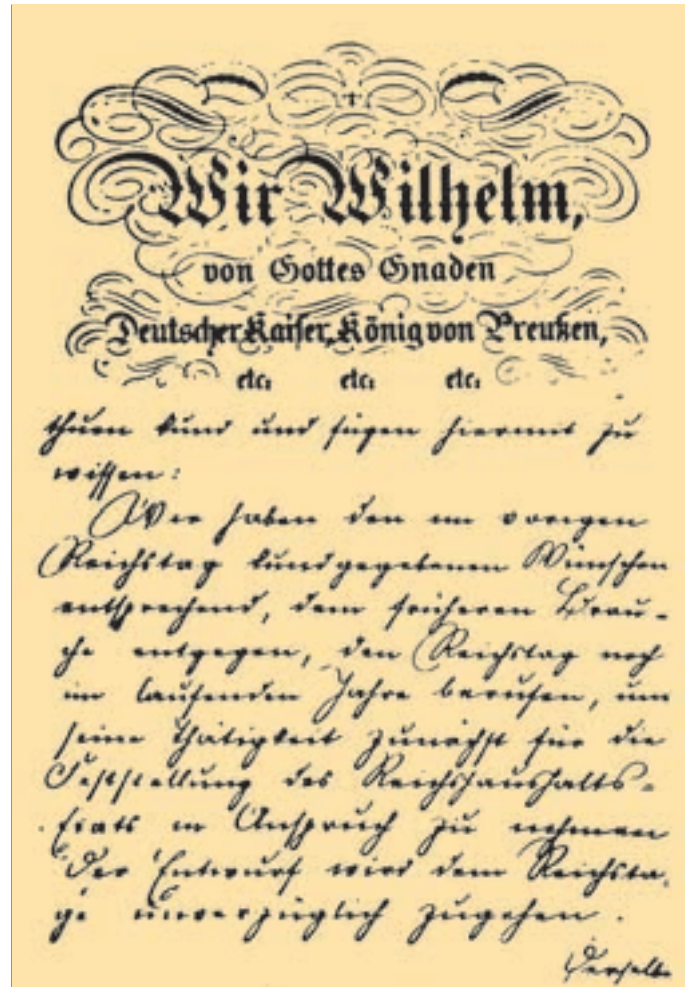 Wir Wilhelm,
von Gottes Gnaden
Deutscher Kaiser, König von Preußen,
etc: etc: etc:
thuen kund und fügen hiermit zu
wissen:
Wir haben den im vorigen
Reichstag kundgegebenen Wünschen
entsprechend, dem früheren Brau-
che entgegen, den Reichstag noch
im laufenden Jahre berufen, um
seine Thätigkeit zunächst für die
Feststellung des Reichshaushalts-
Etats in Anspruch zu nehmen
Der Entwurf wird dem Reichsta-
ge unverzüglich zugehen.
Derselbe